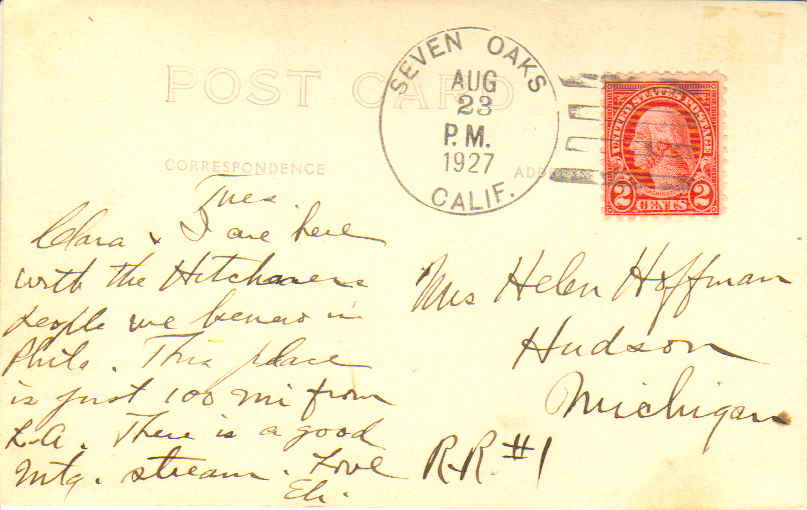 POST CARD
SEVEN OAKS
AUG
23
P.M.
1927
CALIF.
UNITED STATES POSTAGE
2 CENTS 2
CORRESPONDENCE
ADD
Tues.
Clara & I are here
with the
people we knew in
Phila. This place
is just 100 mi from
L.A. There is a good
Mtg. stream. Love
Eli.
Mrs Helen Hoffman
Hudson
Michigan
R.R. #1